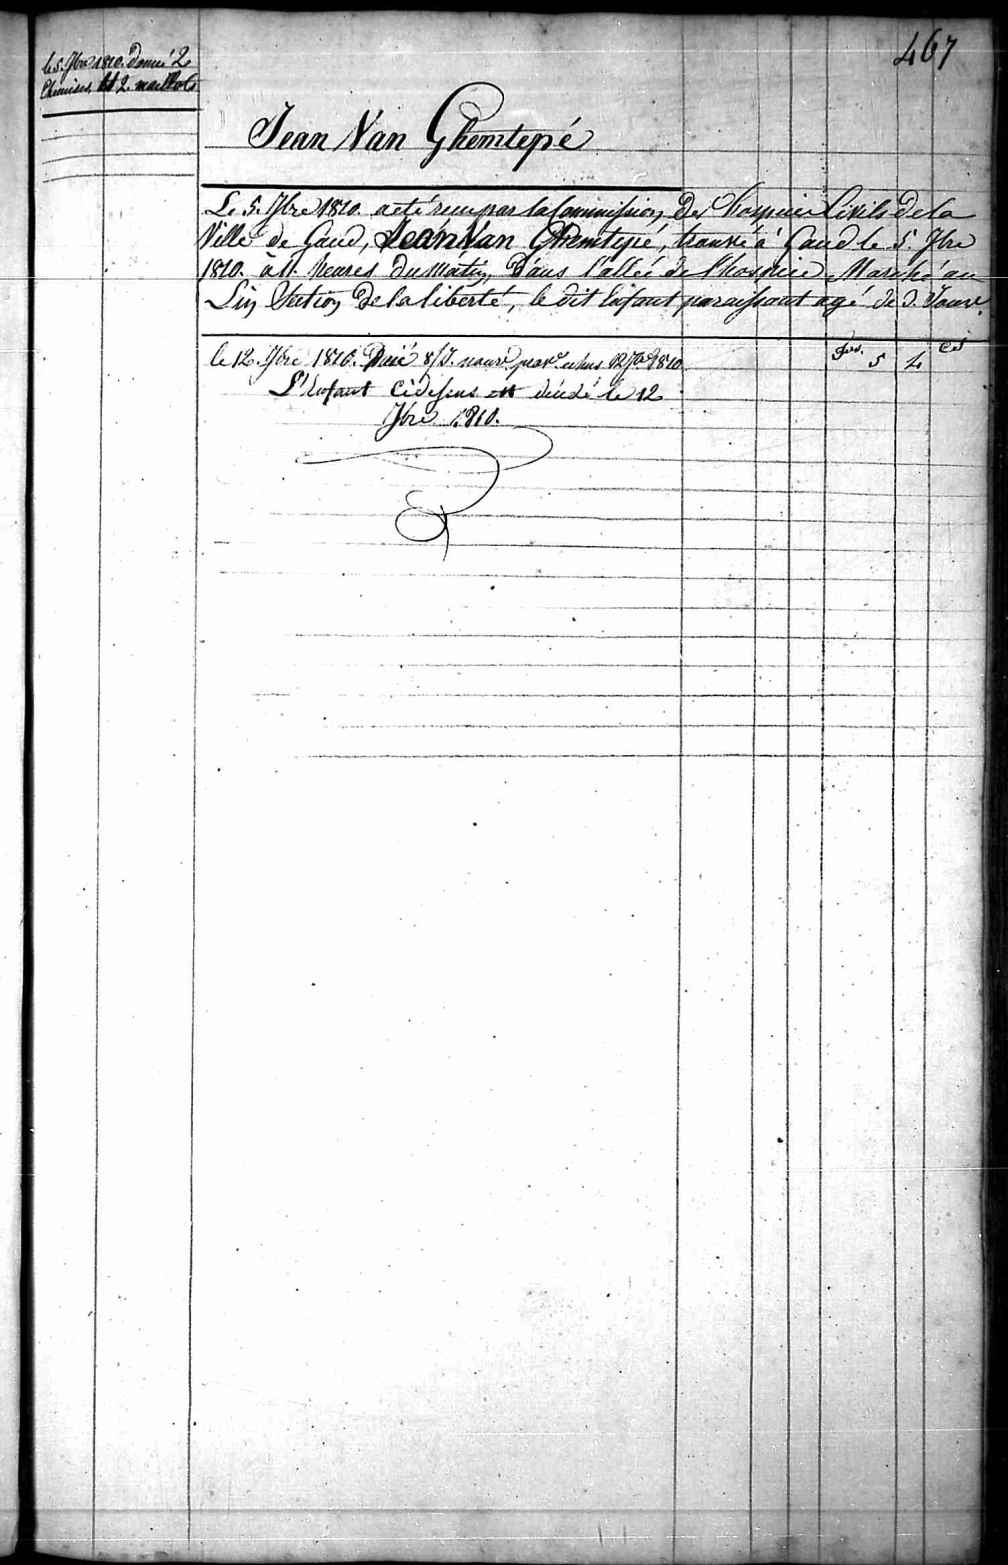 467
le 5. 7bre 1810. donné 2
Chemises et 2 maillots
Jean Van Ghemtepé
Le 5. 7bre 1810. a eté reçu par la Commission Des Hospices Civils de la
Ville de Gand, Jean Van Ghemtepé, trouvé à Gand le 5. 7bre
1810. à 11. heures du matin, dans l'allée de l'hospice Marché au
Lin Section de la liberté, le dit Enfant paraissant agé de 3. Jours.
frs. cs
le 12. 7bre 1810. Paié 8/J. nour 12 7bre 1810 5 4
L'Enfant Cidessus est décédé le 12
7bre 1810.